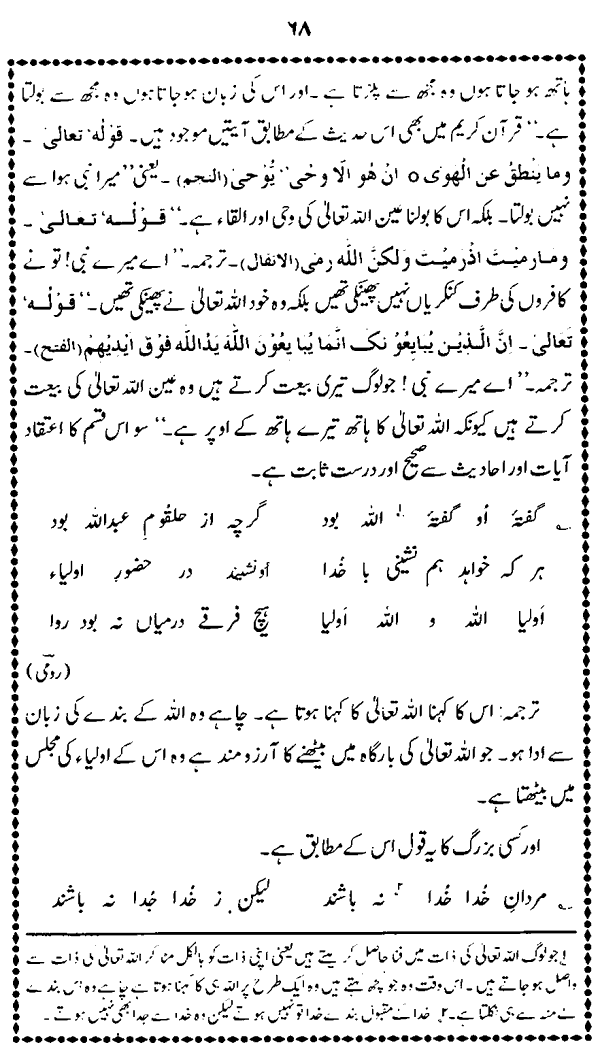 ۶۸
ہاتھ ہو جاتا ہوں وہ مجھ سے پکڑتا ہے۔ اور اس کی زبان ہو جاتا ہوں وہ مجھ سے بولتا
ہے۔'' قرآن کریم میں بھی اس حدیث کے مطابق آیتیں موجود ہیں۔ قولہٗ تعالیٰ ۔
وما ینطق عن الھوٰی o ان ھو الا وحی'' یُّوحیٰ (النجم) ۔ یعنی ''میرا نبی ہوا سے
نہیں بولتا۔ بلکہ اس کا بولنا عین اللہ تعالیٰ کی وحی اور القاء ہے۔'' قولہٗ تعالیٰ ۔
ومارمیت اذرمیت ولکنّ اللّٰہ رمی (الانفال)۔ ترجمہ۔'' اے میرے نبی! تو نے
کافروں کی طرف کنکریاں نہیں پھینکی تھیں بلکہ وہ خود اللہ تعالیٰ نے پھینکی تھیں۔'' قولہٗ
تعالیٰ ۔ اِنَّ الَّذِیْن یُبایِعُوْنک انَّما یُبایعُوْن اللّٰہ یدُاللّٰہ فوْق ایْدیْھِم (الفتح)۔
ترجمہ۔'' اے میرے نبی ! جو لوگ تیری بیعت کرتے ہیں وہ عین اللہ تعالیٰ کی بیعت
کرتے ہیں کیونکہ اللہ تعالیٰ کا ہاتھ تیرے ہاتھ کے اوپر ہے۔'' سو اس قسم کا اعتقاد
آیات اور احادیث سے صحیح اور درست ثابت ہے۔
؎ گفتۂ اُو گفتۂ ۱؎ اللہ بود گرچہ از حلقومِ عبداللہ بود
ہر کہ خواہد ہم نشینی با خُدا اُونشیند در حضورِ اولیاء
اَولیا اللہ و اللہ اَولیا ہیچ فرقے درمیاں نہ بود روا
(رومیؒ)
ترجمہ: اس کا کہنا اللہ تعالیٰ کا کہنا ہوتا ہے۔ چاہے وہ اللہ کے بندے کی زبان
سے ادا ہو۔ جو اللہ تعالیٰ کی بارگاہ میں بیٹھنے کا آرزو مند ہے وہ اس کے اولیاء کی مجلس
میں بیٹھتا ہے۔
اور کسی بزرگ کا یہ قول اس کے مطابق ہے۔
؎ مردانِ خُدا خُدا ۲؎ نہ باشند لیکن ز خُدا جُدا نہ باشند
۱؎ جو لوگ اللہ تعالیٰ کی ذات میں فنا حاصل کر لیتے ہیں یعنی اپنی ذات کو بالکل مٹا کر اللہ تعالیٰ کی ذات سے
واصل ہو جاتے ہیں۔ اس وقت وہ جو کچھ کہتے ہیں وہ ایک طرح پر اللہ ہی کا کہنا ہوتا ہے چاہے وہ اس بندے
کے منہ سے ہی نکلتا ہے۔ ۲؎ خدا کے مقبول بندے خدا تو نہیں ہوتے لیکن وہ خدا سے جدا بھی نہیں ہوتے۔